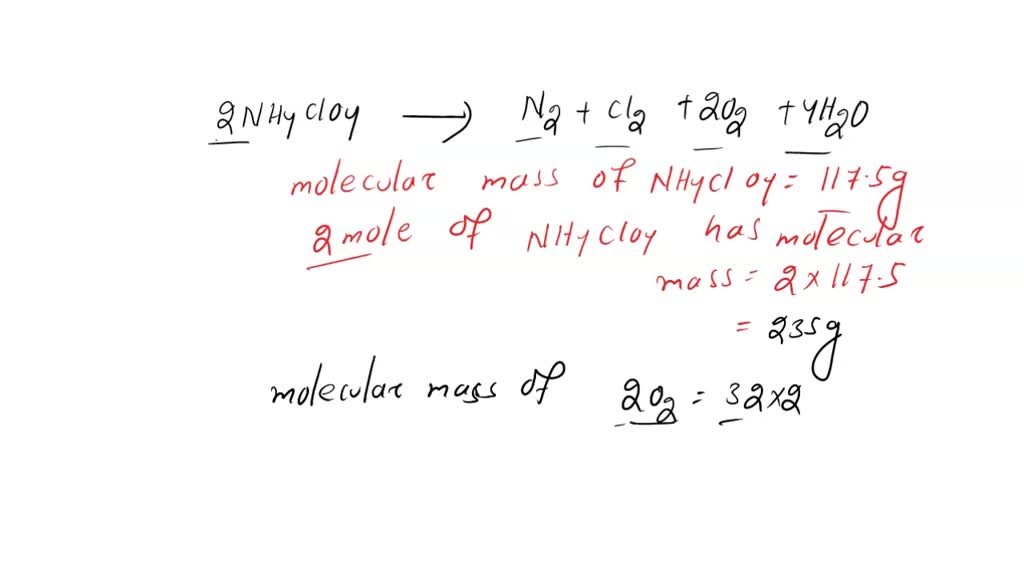 2NH4ClO4 → N2 + Cl2 + 2O2 + 4H2O
molecular mass of NH4ClO4 = 117.5g
2 mole of NH4ClO4 has molecular
mass = 2 × 117.5
= 235g
molecular mass of 2O2 = 32×2